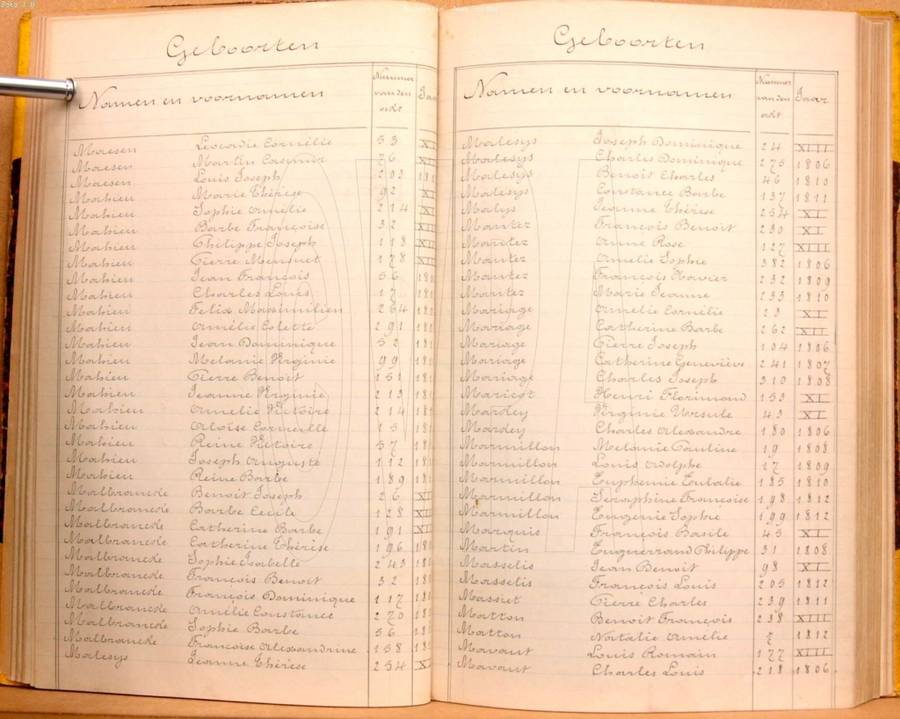 Geboorten
Namen en voornamen Nummer van den acht
Maesen Léocadie Cornélie 53 XI
Maesen Martin Casimir 76
Maesen Louis Joseph 203 181
Mahieu Marie Thérèse 92 XI
Mahieu Sophie Amélie 214 XI
Mahieu Barbe Françoise 32 XII
Mahieu Philippe Joseph 118 XII
Mahieu Pierre 178 XII
Mahieu Jean François 56 180
Mahieu Charles Louis 17 181
Mahieu Felix Maximilien 264 181
Mahieu Amélie Colette 291 181
Mahieu Jean Dominique 52 181
Mahieu Melanie Virginie 99 181
Mahieu Pierre Benoit 151 181
Mahieu Jeanne Virginie 213 181
Mahieu Amelie Victoire 214 181
Mahieu Aloïse Corneille 15 181
Mahieu Reine Victoire 57 181
Mahieu Joseph Auguste 112 181
Mahieu Reine Barbe 189 181
Malbrancke Benoit Joseph 26 XI
Malbrancke Barbe Cecile 128 XI
Malbrancke Catherine Barbe 191 XI
Malbrancke Catherine Thérèse 196 180
Malbrancke Sophie Isabelle 243 180
Malbrancke François Benoit 32 180
Malbrancke François Dominique 117 181
Malbrancke Amélie Constance 270 181
Malbrancke Sophie Barbe 56 181
Malbrancke Françoise Alexandrine 158 181
Malesys Jeanne Thérèse 254 X
Geboorten
Namen en voornamen Nummer van den acht Jaar
Malesys Joseph Dominique 24 XIII
Malesys Charles Dominique 275 1806
Malesys Benoit Charles 46 1810
Malesys Constance Barbe 137 1811
Malys Jeanne Thérèse 254 XI
Mantez François Benoit 230 XI
Mantez Anne Rose 127 XIII
Mantez Amelie Sophie 382 1806
Mantez François Xavier 232 1809
Mantez Marie Jeanne 233 1810
Mariage Amélie Cornélie 23 XI
Mariage Catherine Barbe 262 XII
Mariage Pierre Joseph 104 1806
Mariage Catherine Geneviève 241 1807
Mariage Charles Joseph 310 1808
Maricot Henri Florimond 153 XI
Marley Virginie Ursule 43 XI
Marley Charles Alexandre 180 1806
Marmillon Melanie Pauline 19 1808
Marmillon Louis Adolphe 17 1809
Marmillon Euphemie Eulalie 185 1810
Marmillon Seraphine Françoise 198 1812
Marmillon Eugenie Sophie 199 1812
Marquis François Basile 45 XI
Martin Enguerrand Philippe 31 1808
Masselis Jean Benoit 98 XI
Masselis François Louis 205 1812
Massiet Pierre Charles 239 1811
Matton Benoit François 238 XIII
Matton Natalie Amelie 7 1812
Mavaut Louis Romain 177 XIII
Mavaut Charles Louis 218 1806